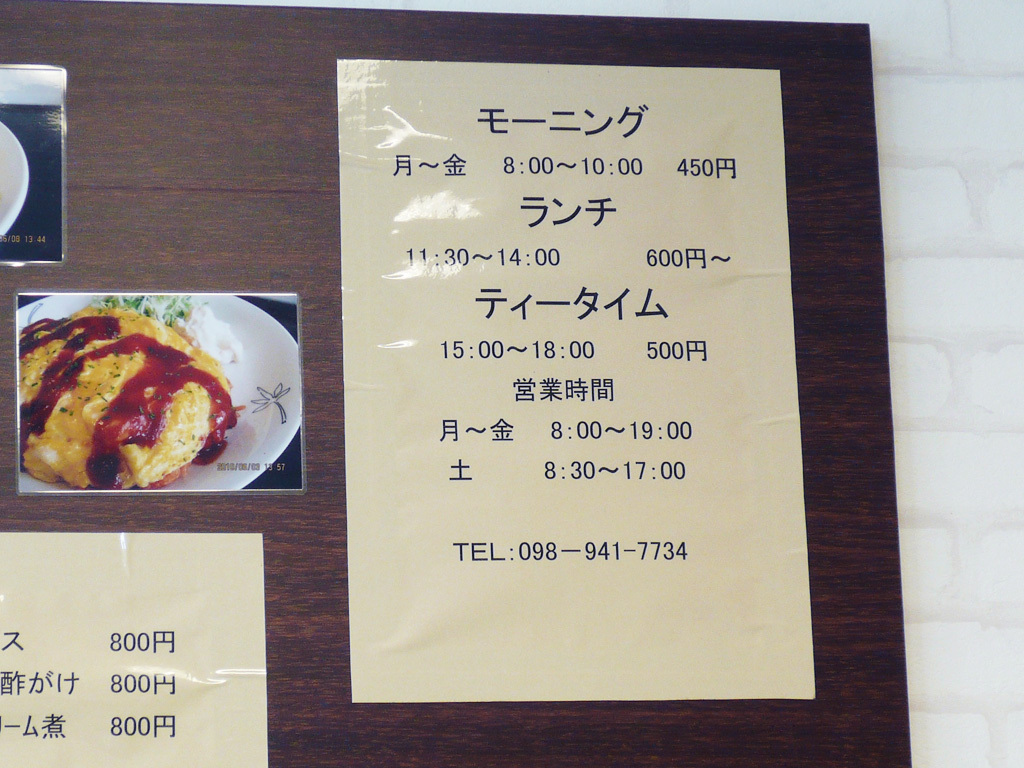 モーニング
月～金 8:00～10:00 450円
ランチ
11:30～14:00 600円～
ティータイム
15:00～18:00 500円
営業時間
月～金 8:00～19:00
土 8:30～17:00
TEL:098－941-7734
13:44
13:57
ス 800円
酢がけ 800円
リーム煮 800円